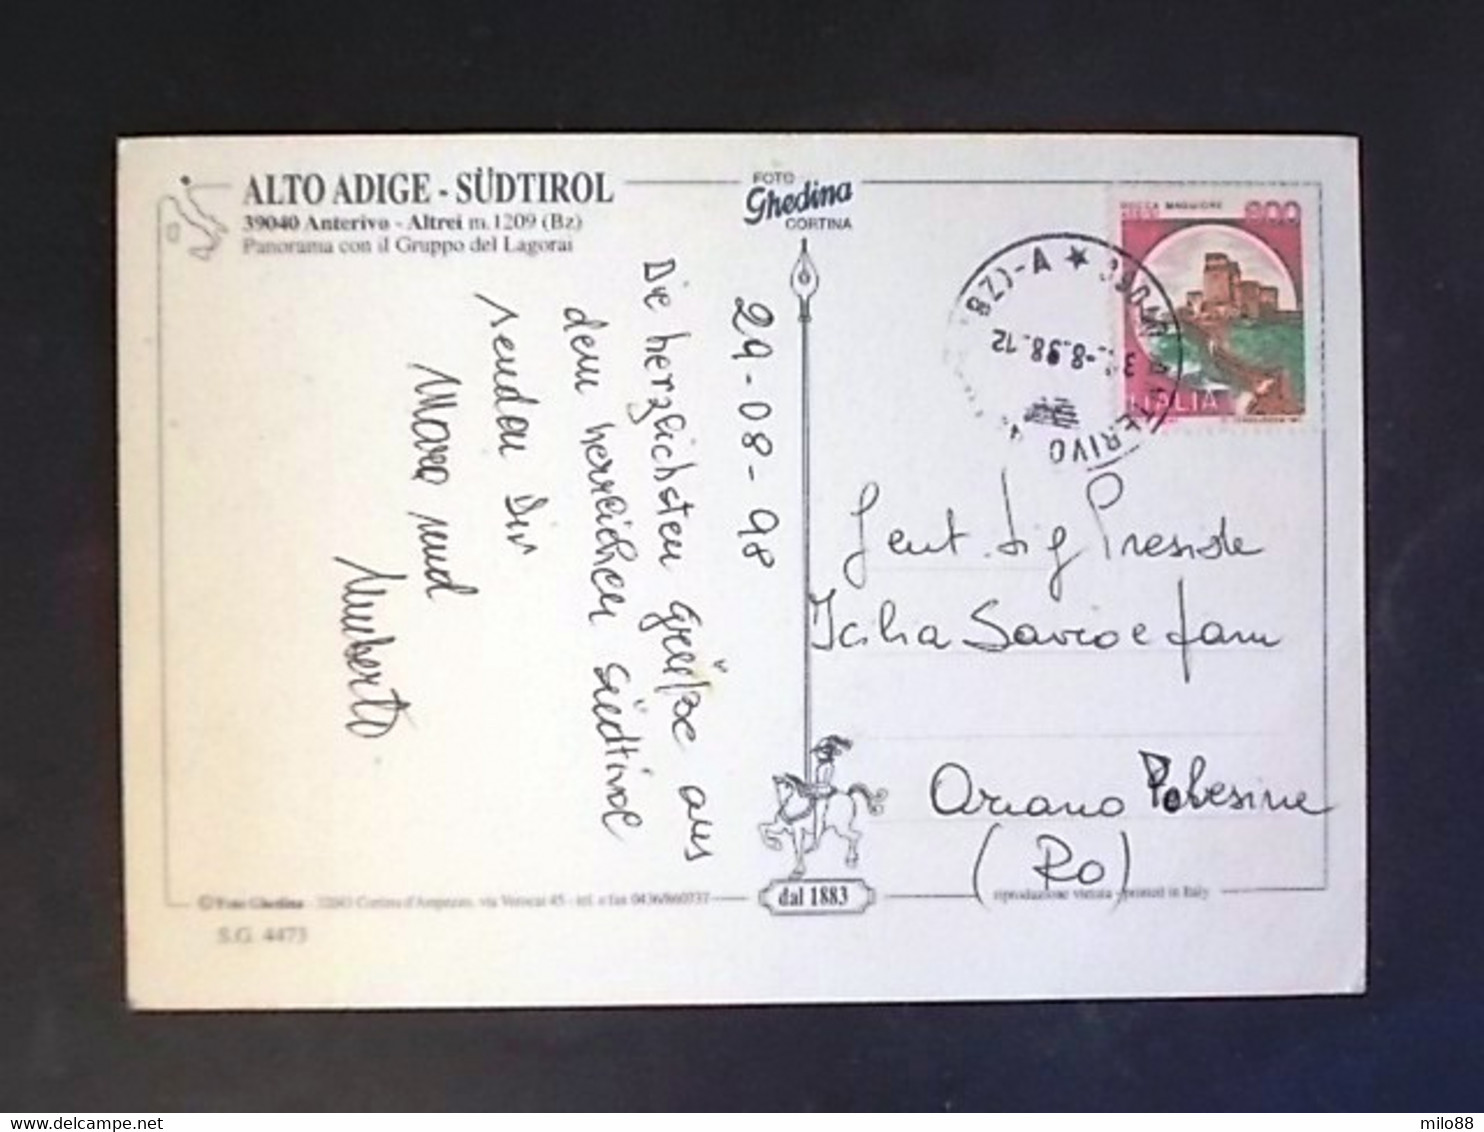 ALTO ADIGE - SÜDTIROL
39040 Anterivo - Altrei m. 1209 (Bz)
Panorama con il Gruppo del Lagorai
FOTO
Ghedina
CORTINA
29-08-98
Die herzlichsten Grüße aus
dem herrlichen Südtirol
senden Dir
Mara und
Umberto
ROCCA MAGGIORE
900
ITALIA
(BZ)-A ★ 390
-8.98.12
Gent. Sig Preside
Icilia Savio e fam
Ariano Polesine
(Ro)
dal 1883
© Foto Ghedina - 32043 Cortina d'Ampezzo, via Verocai 45 - tel. e fax 0436/860737
riproduzione vietata - printed in Italy
S.G. 4473
milo88